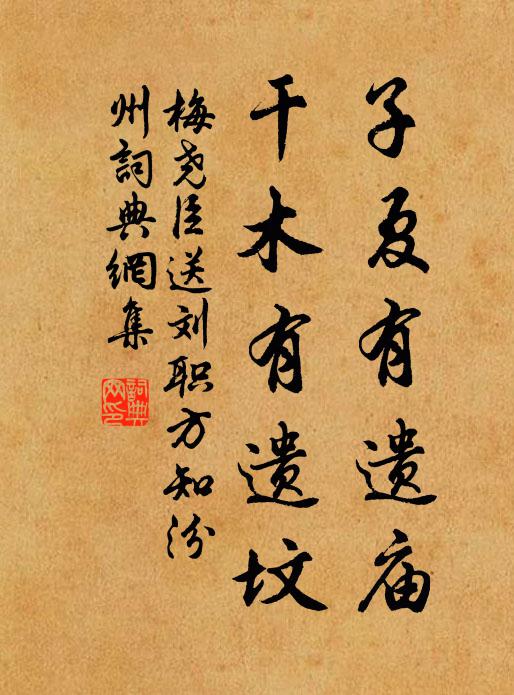 子夏有遗庙
干木有遗坟
梅尧臣送刘职方知汾
州詞典網集
詞典網印